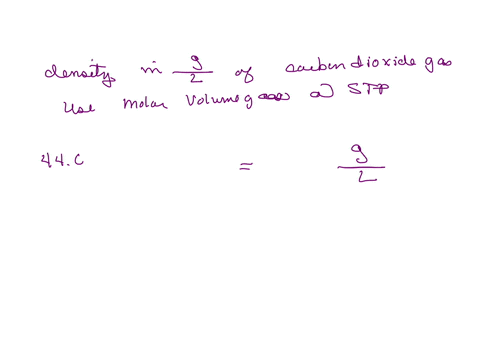 density in g/L of carbon dioxide gas
Use molar volume gases @ STP
44.0 = g/L